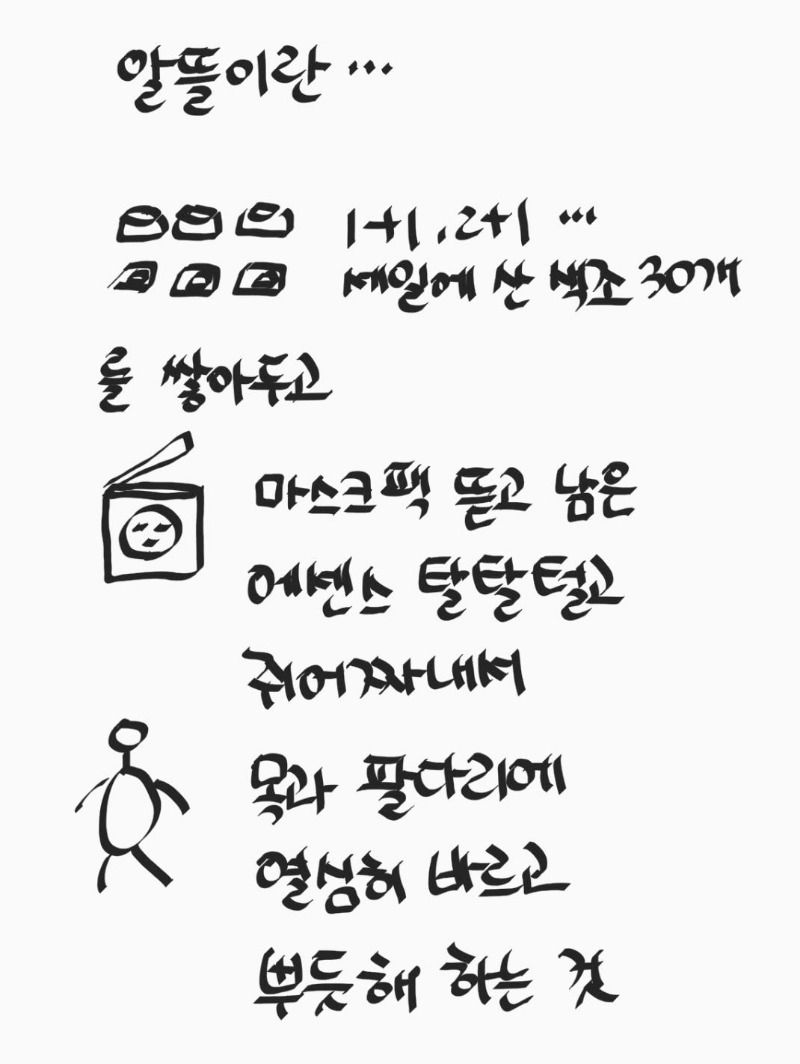 알뜰이란 ...
1+1, 2+1 ...
세일에 산 색조 30개
를 쌓아두고
마스크팩 뜯고 남은
에센스 탈탈 털고
쥐어짜내서
목과 팔다리에
열심히 바르고
뿌듯해 하는 것